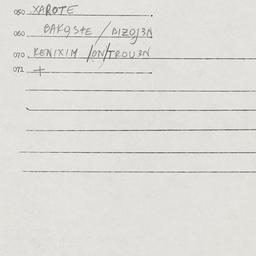 050 XAROTE
060 BAKQSTE / DIZOJ3N
070 KENIXIM /ON/TROU3N
071 +